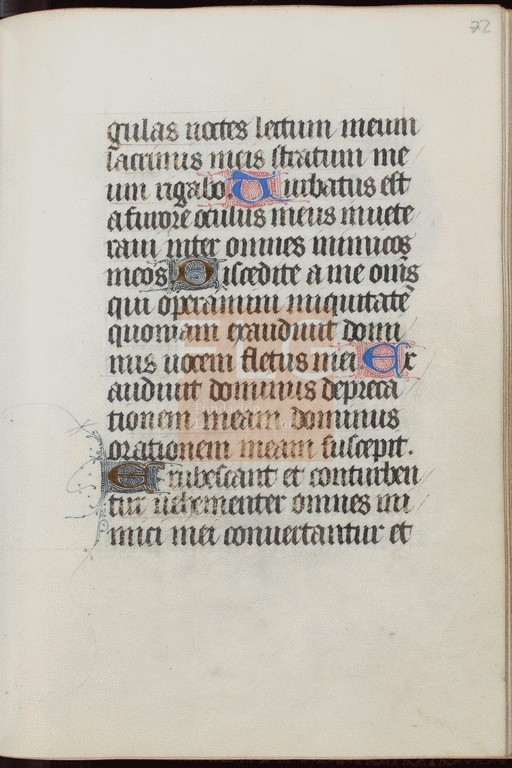 72
gulas noctes lectum meum
lacrimis meis stratum me
um rigabo Turbatus est
a furore oculus meus invete
ravi inter omnes inimicos
meos Discedite a me om̄s
qui operamini iniquitatē
quoniam exaudivit domi
nus vocem fletus mei Ex
audivit dominus depreca
tionem meam dominus
orationem meam suscepit.
Erubescant et conturben
tur vehementer omnes ini
mici mei convertantur et